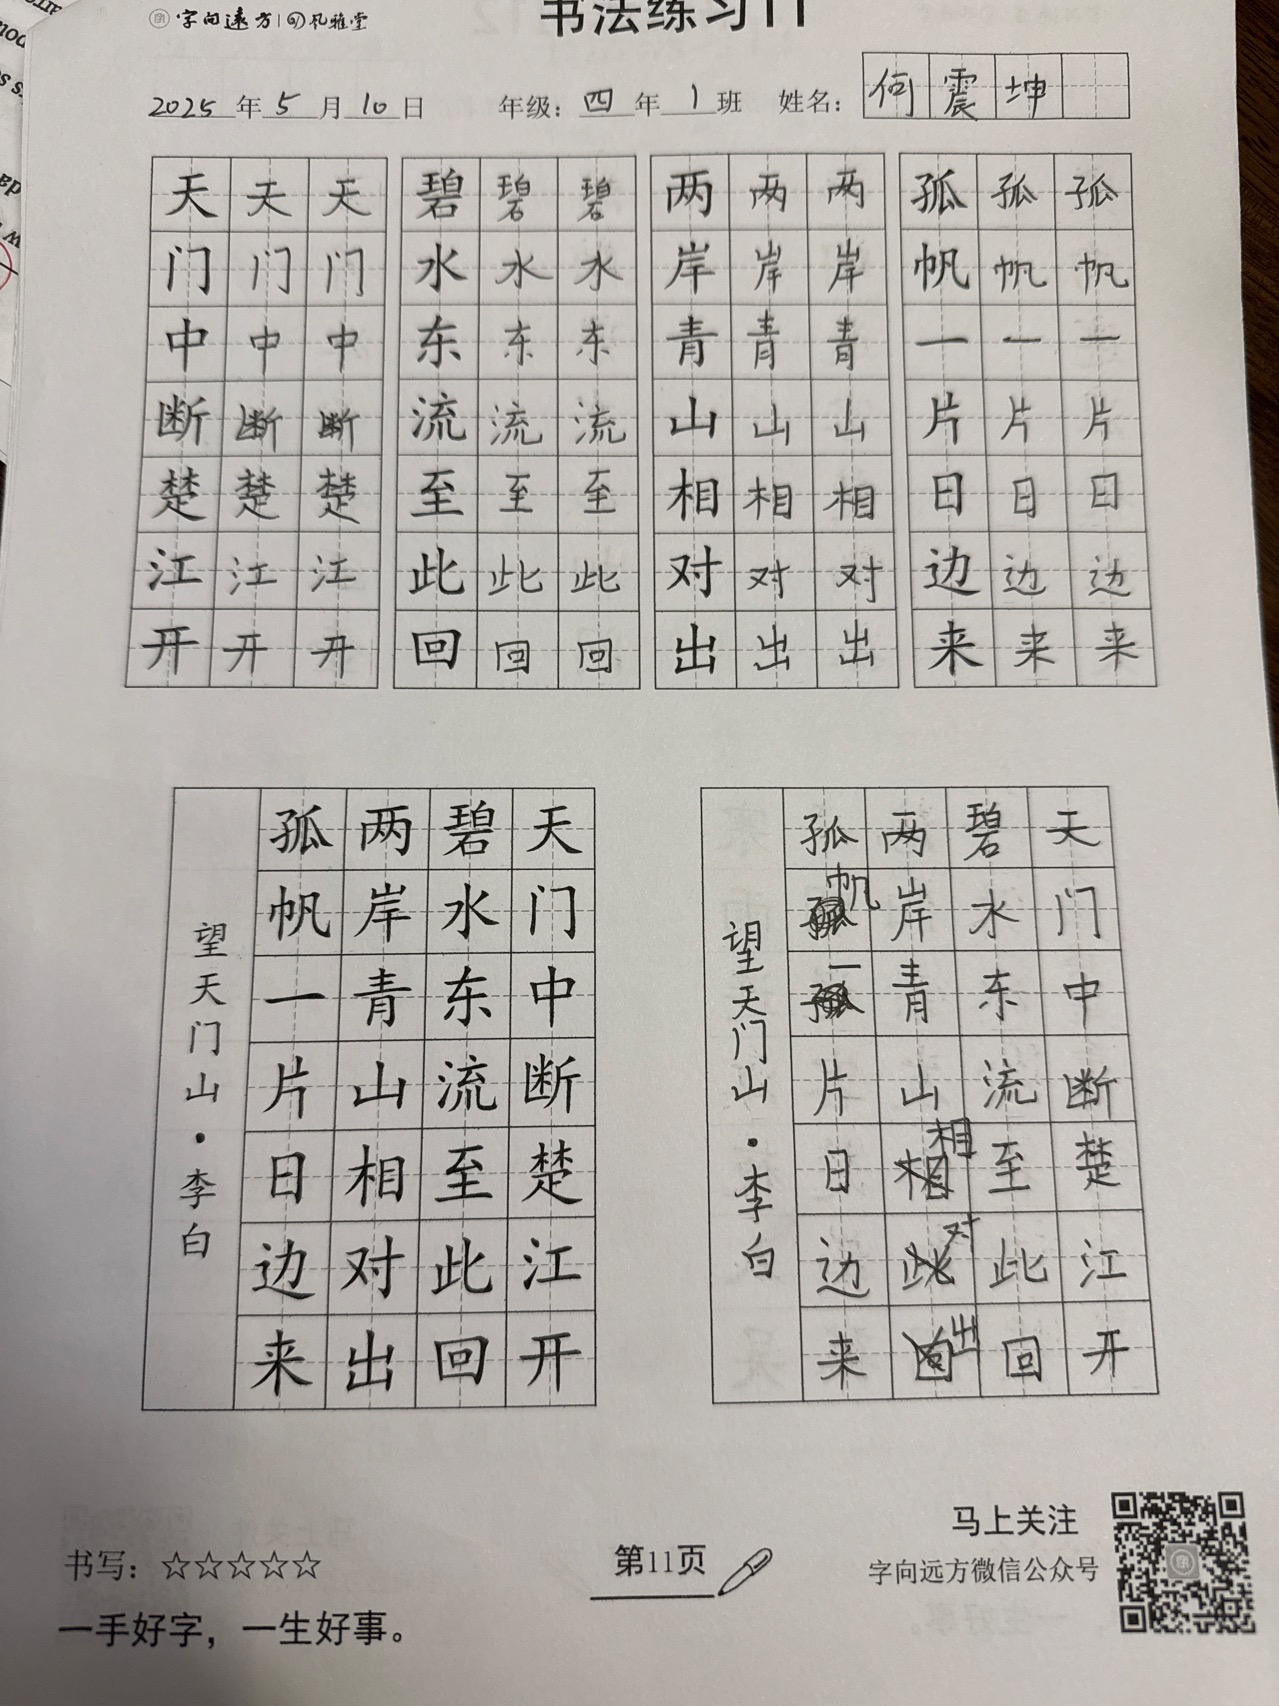 字向远方 风雅堂
书法练习11
2025年5月10日 年级：四年1班 姓名：何震坤
天天天 碧碧碧 两两两 孤孤孤
门门门 水水水 岸岸岸 帆帆帆
中中中 东东东 青青青 一一一
断断断 流流流 山山山 片片片
楚楚楚 至至至 相相相 日日日
江江江 此此此 对对对 边边边
开开开 回回回 出出出 来来来
天门中断楚江开
碧水东流至此回
两岸青山相对出
孤帆一片日边来
望天门山·李白
天门中断楚江开
碧水东流至此回
两岸青山相对出
孤帆一片日边来
望天门山·李白
书写：☆☆☆☆☆
一手好字，一生好事。
第11页
马上关注
字向远方微信公众号